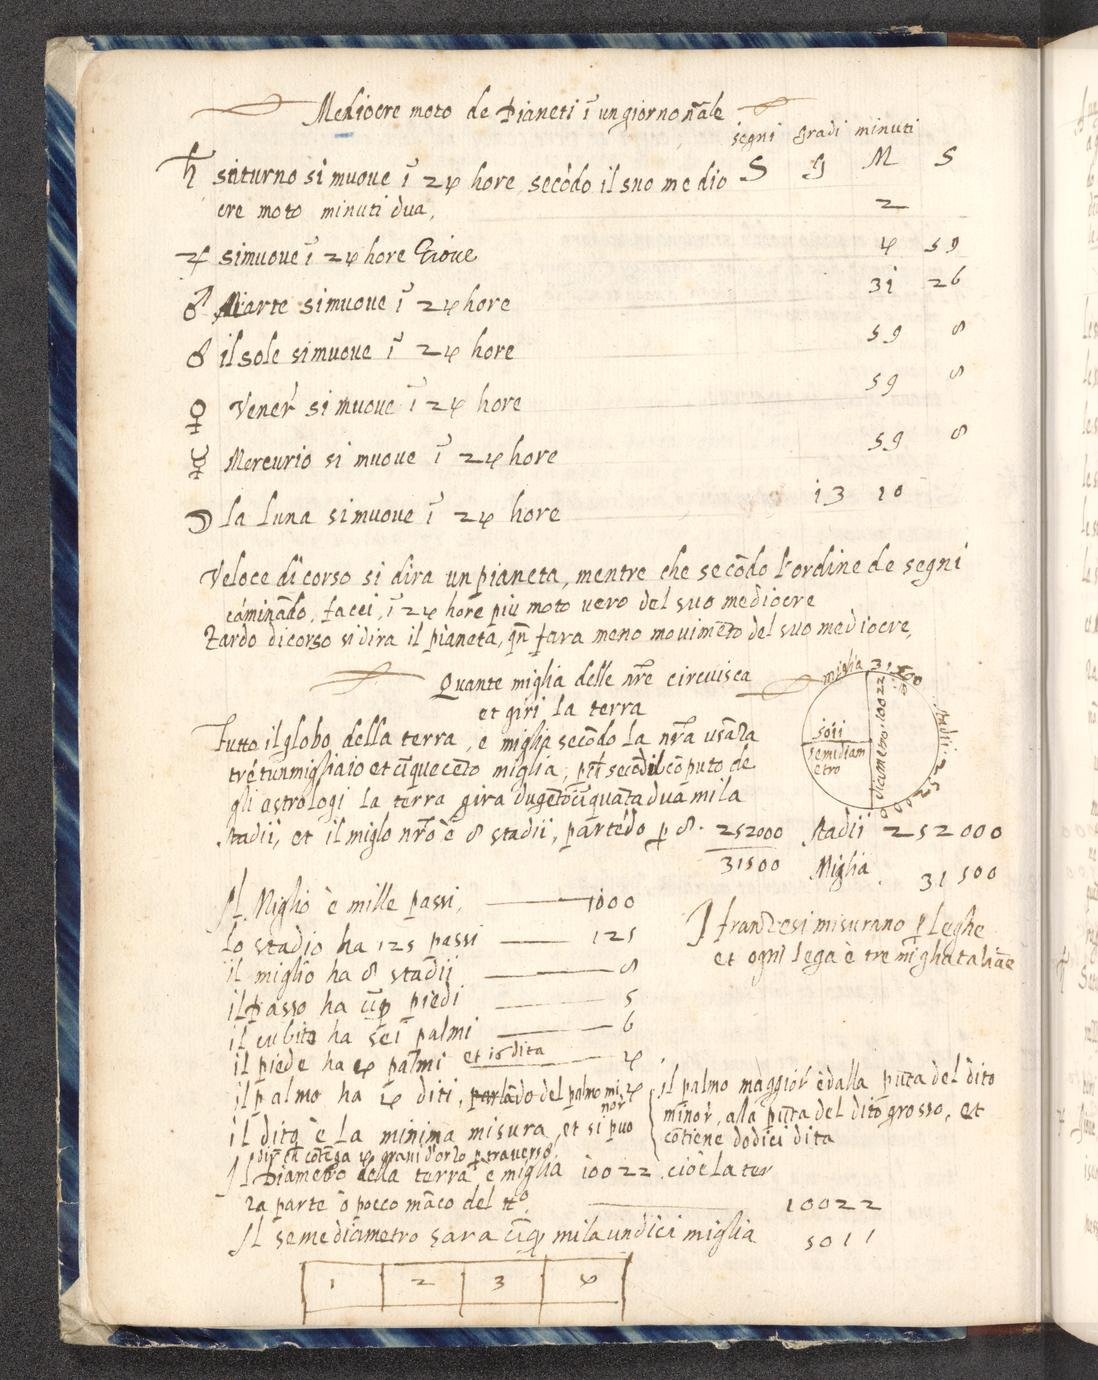 Mediocre moto de Pianeti ī un giorno nr̄ale
segni gradi minuti
S g M S
♄ saturno si muoue ī 24 hore secōdo il suo medio
cre moto minuti dua, 2
♃ si muoue ī 24 hore Gioue 4 59
♂ Marte si muoue ī 24 hore 31 26
il sole si muoue ī 24 hore 59 8
♀ Vener̄ si muoue ī 24 hore 59 8
☿ Mercurio si muoue ī 24 hore 59 8
☽ la luna si muoue ī 24 hore 13 10
Veloce di corso si dira un pianeta, mentre che secōdo l'ordine de segni
caminādo, facci, ī 24 hore piu moto uero del suo mediocre
Tardo di corso si dira il pianeta, qn̄ fara meno mouimēto del suo mediocre,
Quante miglia delle nr̄e circuisca
et giri la terra
Tutto il globo della terra, e miglia secōdo la nr̄a usāza
trētun migliaio et cīquecēto miglia, secōdo il cōputo de
gli astrologi la terra gira dugētocīquātadua mila
stadii, et il miglo nr̄o è 8 stadii, partēdo p 8. 252000
31500
miglia 31500
diametro 10022
5011
semidiam
etro
stadii. 252000
Stadii 252000
Miglia 31500
Il Miglio è mille passi, 1000
Lo stadio ha 125 passi 125
il miglio ha 8 stadii 8
il passo ha cīq piedi 5
il cubito ha sei palmi 6
il piede ha 4 palmi et 16 dita 4
il palmo ha 4 diti, parlādo del palmo mi 4
nor̄
il dito è la minima misura, et si puo
4 grani d'orzo p trauerso,
I franzesi misurano p leghe
et ogni lega è tre miglia taliāe
il palmo maggior è dalla pūta del dito
minor, alla pūta del dito grosso, et
cōtiene dodici dita
Il Diametro della terra e miglia 10022 cioè la ter
za parte ō pocco māco del tt̊o, 10022
Il semediametro sara cīq mila undici miglia 5011
1 2 3 4